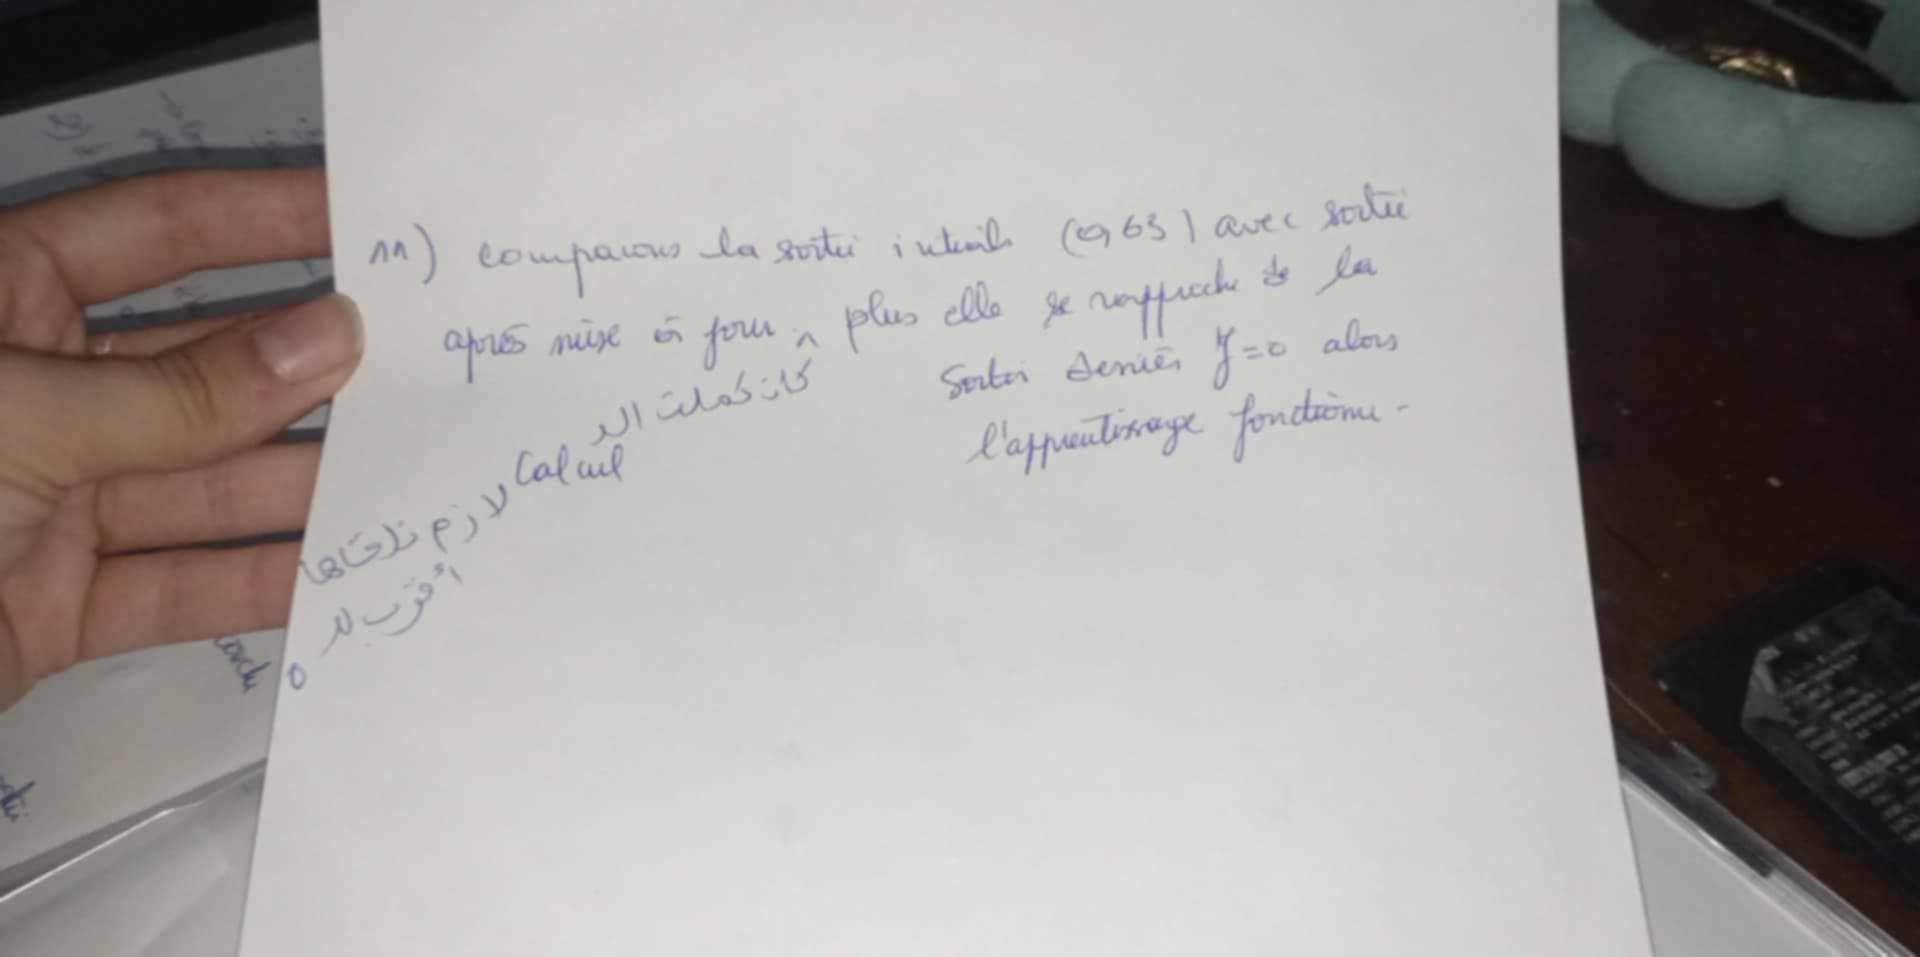 11) comparons la sortie initiale (0,63) avec sortie
après mise à jour, plus elle se rapproche de la
sortie désirée y=0 alors
l'apprentissage fonctionne.
كان كملت الـ
calcul
لازم نلقاها
أقرب لـ
0